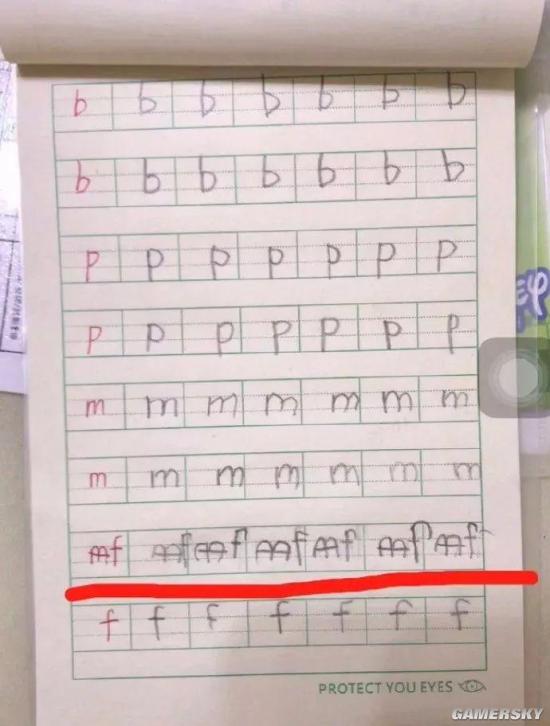 b b b b b b b
b b b b b b b
p p p p p p p
p p p p p p p
m m m m m m m
m m m m m m m
f f f f f f f
PROTECT YOU EYES
GAMERSKY